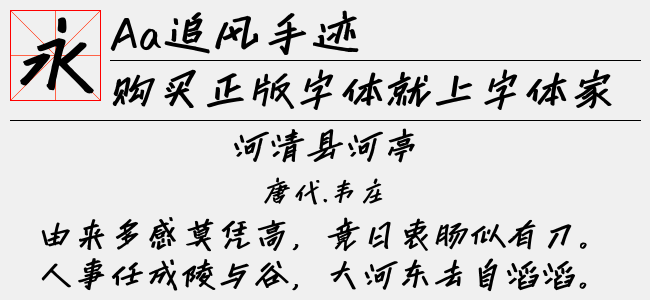 永
Aa追风手迹
购买正版字体就上字体家
河清县河亭
唐代.韦庄
由来多感莫凭高，竟日衷肠似有刀。
人事任成陵与谷，大河东去自滔滔。